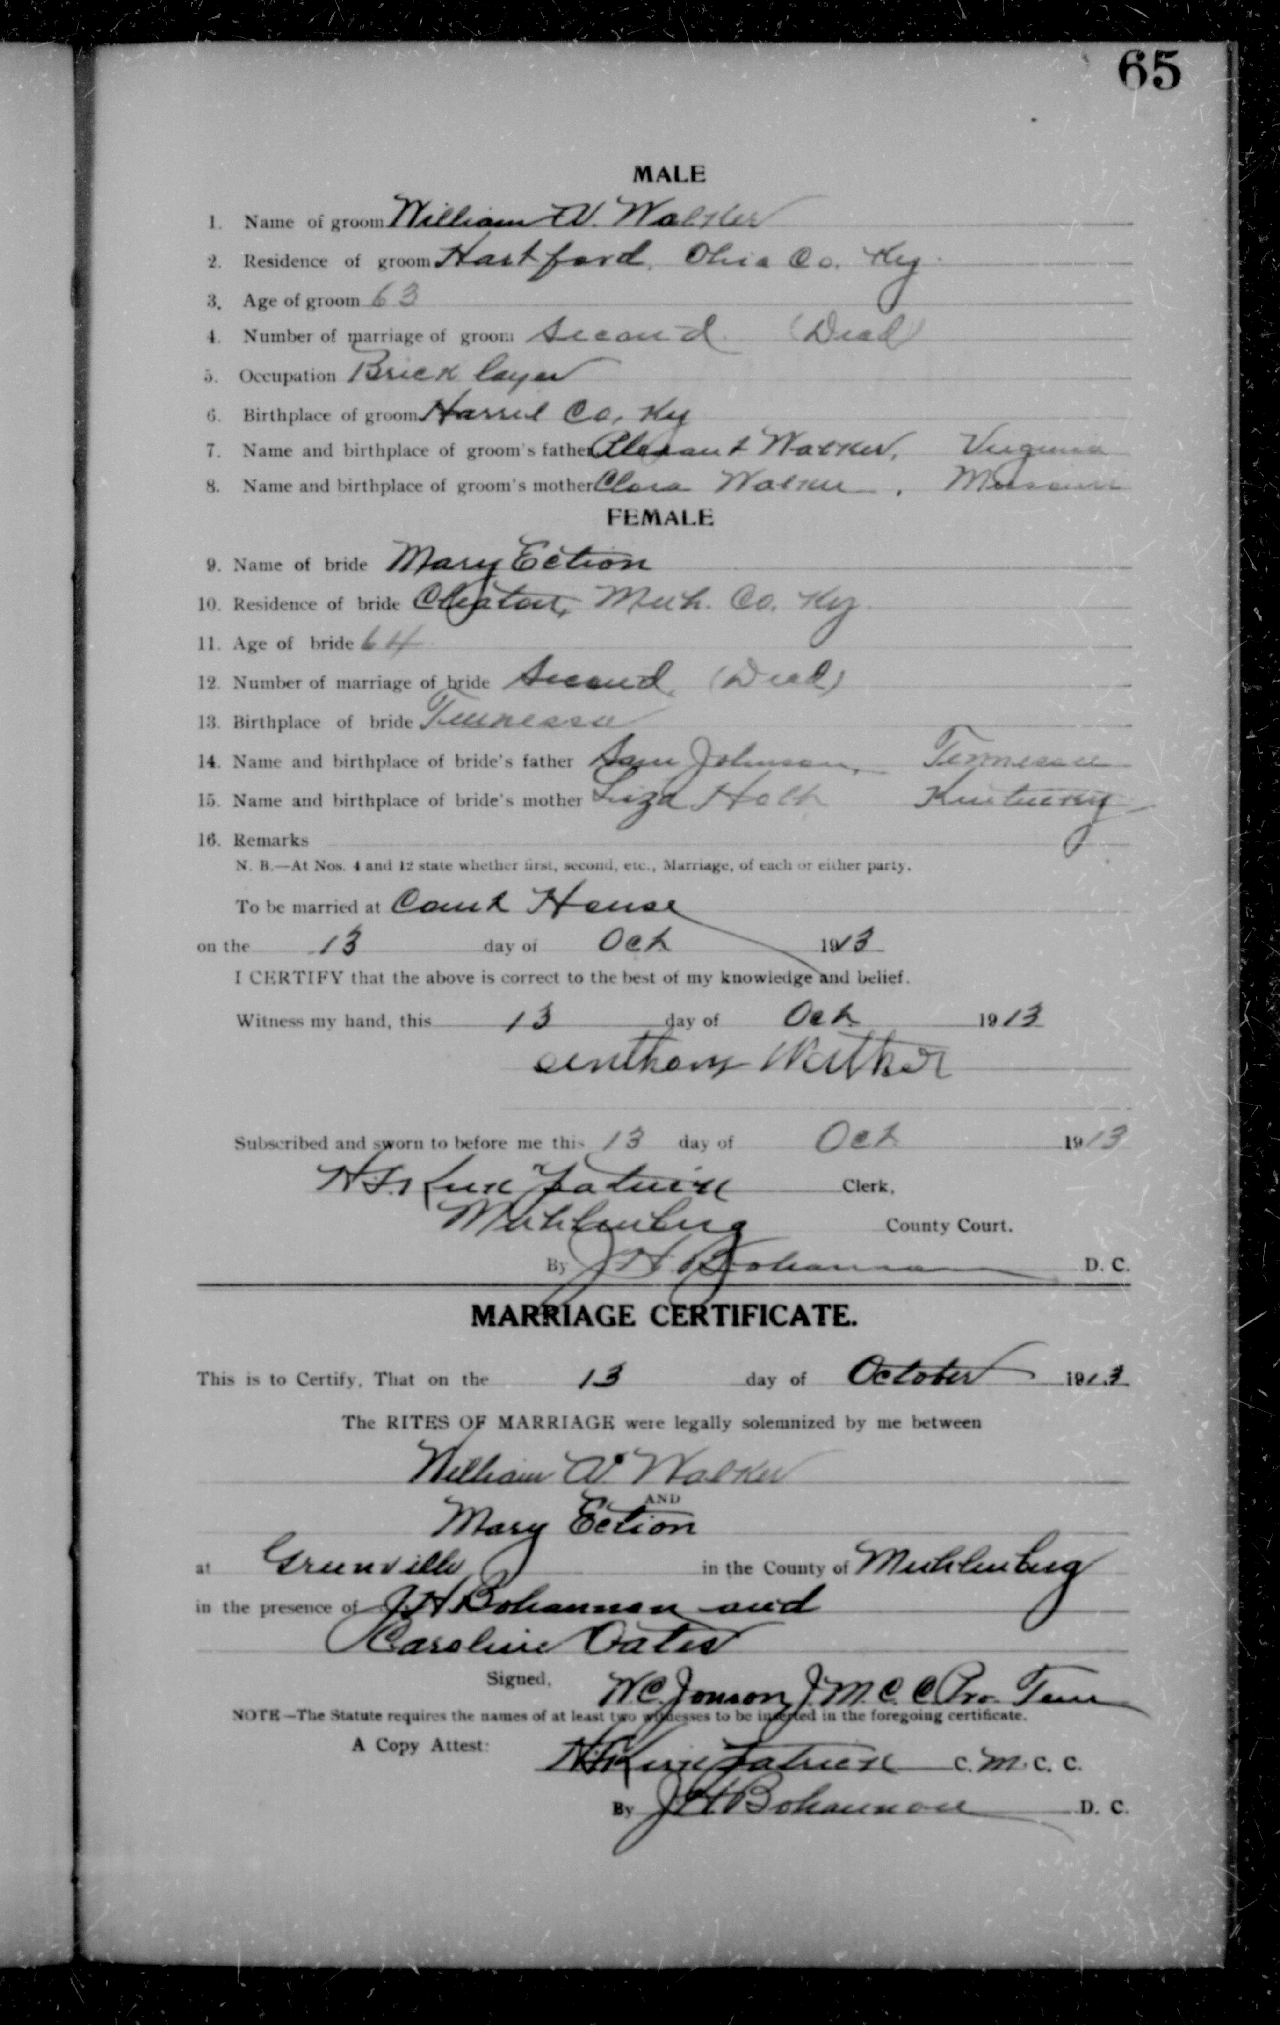 65
MALE
1. Name of groom William W. Walker
2. Residence of groom Hartford, Ohio Co. Ky.
3. Age of groom 63
4. Number of marriage of groom Second (Dead)
5. Occupation Brick layer
6. Birthplace of groom Co, Ky
7. Name and birthplace of groom's father Plesant Walker, Virginia
8. Name and birthplace of groom's mother Clara Walker, Missouri
FEMALE
9. Name of bride Mary Ection
10. Residence of bride Cleaton, Muh. Co. Ky.
11. Age of bride 64
12. Number of marriage of bride Second, (Dead)
13. Birthplace of bride Tennessee
14. Name and birthplace of bride's father Sam Johnson, Tennessee
15. Name and birthplace of bride's mother Liza Holt Kentucky
16. Remarks
N. B.—At Nos. 4 and 12 state whether first, second, etc., Marriage, of each or either party.
To be married at Court House
on the 13 day of Oct 1913
I CERTIFY that the above is correct to the best of my knowledge and belief.
Witness my hand, this 13 day of Oct 1913
Anthony Walker
Subscribed and sworn to before me this 13 day of Oct 1913
Kirkpatrick Clerk,
Muhlenberg County Court.
By J H Bohannon D. C.
MARRIAGE CERTIFICATE.
This is to Certify, That on the 13 day of October 1913
The RITES OF MARRIAGE were legally solemnized by me between
William W. Walker
AND
Mary Ection
at Greenville in the County of Muhlenberg
in the presence of J H Bohannon and
Caroline Oates
Signed, W.C. Jonson, J.M.C.C. Pro. Tem
NOTE—The Statute requires the names of at least two witnesses to be inserted in the foregoing certificate.
A Copy Attest: Kirkpatrick C. M. C. C.
By J H Bohannon D. C.